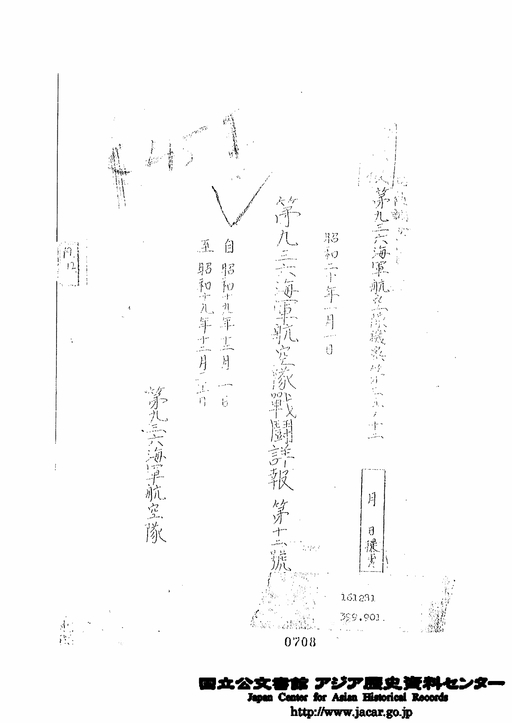 451
第九三六海軍航空隊機密第
昭和二十年一月一日
第九三六海軍航空隊戰鬪詳報 第十二號
自 昭和十九年十二月一日
至 昭和十九年十二月
第九三六海軍航空隊
月 日
161231
399.901.
0708
国立公文書館 アジア歴史資料センター
Japan Center for Asian Historical Records
http://www.jacar.go.jp